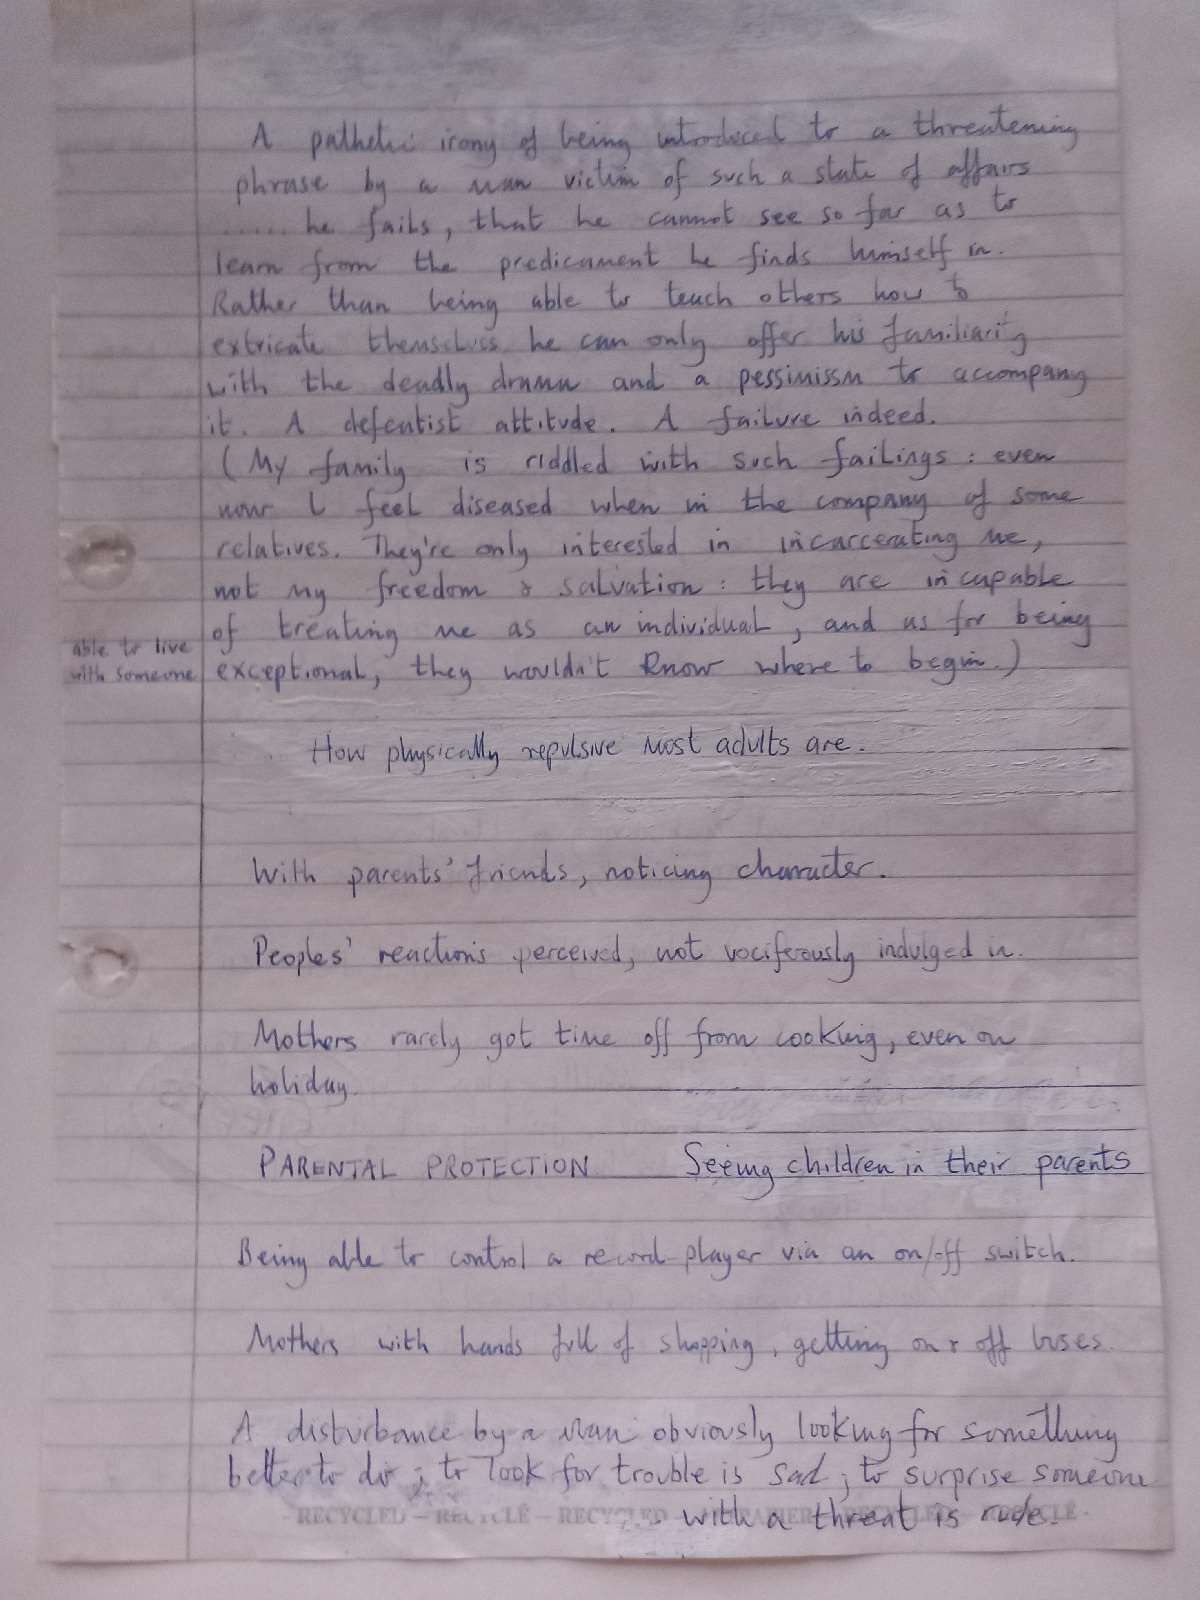 A pathetic irony of being introduced to a threatening
phrase by a man victim of such a state of affairs
..... he fails, that he cannot see so far as to
learn from the predicament he finds himself in.
Rather than being able to teach others how to
extricate themselves he can only offer his familiarity
with the deadly drama and a pessimism to accompany
it. A defeatist attitude. A failure indeed.
(My family is riddled with such failings: even
now I feel diseased when in the company of some
relatives. They're only interested in incarcerating me,
not my freedom & salvation: they are incapable
of treating me as an individual, and as for being
able to live
with someone
exceptional, they wouldn't know where to begin.)
How physically repulsive most adults are.
With parents' friends, noticing character.
Peoples' reactions perceived, not vociferously indulged in.
Mothers rarely got time off from cooking, even on
holiday.
PARENTAL PROTECTION Seeing children in their parents
Being able to control a record-player via an on/off switch.
Mothers with hands full of shopping, getting on & off buses.
A disturbance by a man obviously looking for something
better to do; to look for trouble is sad; to surprise someone
with a threat is rude.
- RECYCLED – RECYCLÉ – RECYCLED –